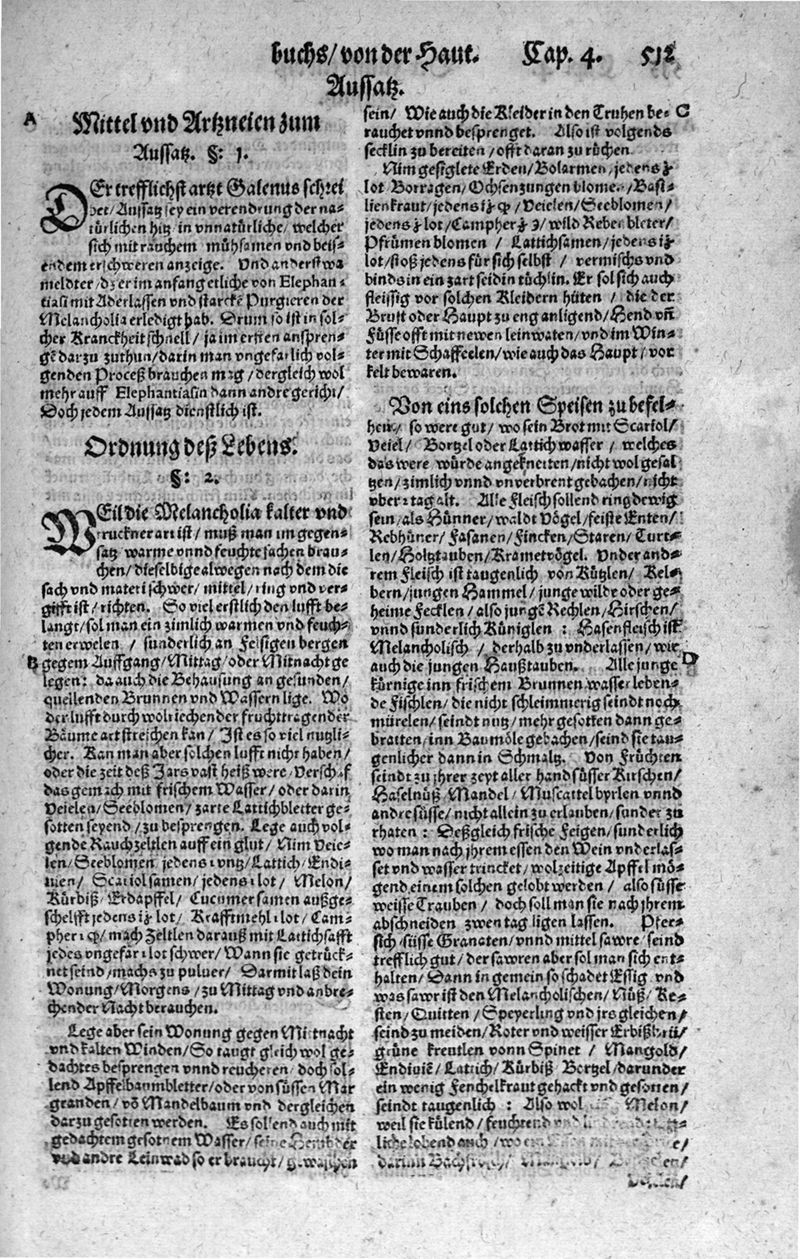 buchs/ von der Haut. Cap. 4. 512
Aussatz.
A
Mittel vnd Artzneien zum
Aussatz. §: 1.
DEr trefflichst artzt Galenus schrei
bet/ Aussatz sey ein verendrung der na-
türlichen hitz in vnnatürliche/ welcher
sich mit rauchem mühsamen vnd beis-
endem erschweren anzeige. Vnd anderstwa
meldter/ dz er im anfang etliche von Elephan-
tiasi mit Aderlassen vnd starckē Purgieren der
Melancholia erledigt hab. Drum so ist in sol-
cher Kranckheit schnell/ ja im ersten anspren-
gē darzu zuthun/ darin man vngefarlich vol-
genden Proceß brauchen mag/ der gleich wol
mehr auff Elephantiasin dann andre gericht/
Doch jedem Aussatz dienstlich ist.
Ordnung deß Lebens.
§: 2.
WEil die Melancholia kalter vnd
truckner art ist/ muß man im gegen-
satz warme vnnd feuchte sachen brau-
chen/ dieselbige alwegen nach dem die
sach vnd materi schwer/ mittel/ ring vnd ver-
gifft ist/ richten. So viel erstlich den lufft be-
langt/ sol man ein zimlich warmen vnd feuch-
ten erwelen/ sunderlich an Felsigen bergen
B
gegem Auffgang/ Mittag/ oder Mitnacht ge
legen: da auch die Behausung an gesunden/
quellenden Brunnen vnd Wassern lige. Wo
der lufft durch wolriechender fruchttragender
Bäume art streichen kan/ Ist es so viel nutzli-
cher. Kan man aber solchen lufft nicht haben/
oder die zeit deß Jars vast heiß were/ Verschaf
das gemach mit frischem Wasser/ oder darin
Veielen/ Seeblomen/ zarte Lattichbletter ge-
sotten seyend/ zu besprengen. Lege auch vol-
gende Rauchzeltlen auff ein glut/ Nim Veie-
len/ Seeblomen jedens 1 vntz/ Lattich/ Endi-
uien/ Scariolsamen/ jedens 1 lot/ Melon/
Kürbiß/ Erdäpffel/ Cucumer samen außge-
schelfft jedens lot/ Krafftmehl 1 lot/ Cam-
pher mach Zeltlen darauß mit Lattichsafft
jedes vngefar 1 lot schwer/ Wann sie getrück-
net seind/ machs zu puluer/ Darmit laß dein
Wonung/ Morgens/ zu Mittag vnd anbre-
chender Nacht berauchen.
Lege aber sein Wonung gegen Mittnacht
vnd kalten Winden/ So taugt gleich wol ge-
dachtes besprengen vnnd reucheren/ doch sol-
lend Apffelbaumbletter/ oder von süssen Mar
granden/ vō Mandelbaum vnd dergleichen
darzu gesotten werden. Es sollend auch mit
gedachtem gesotnem Wasser/ seine Hembder
vnd andre Leinwad so er braucht/ gewaschen
sein/ Wie auch die Kleider in den Truhen be-
C
rauchet vnnd besprenget. Also ist volgends
secklin zu bereiten/ offt daran zu rüchen
Nim gesiglete Erden/ Bolarmen/ jedens
lot Borragen/ Ochsenzungen blomen/ Basi-
lienkraut/ jedens Veielen/ Seeblomen/
jedens lot/ Campher wild Reben bletter/
Pfrümen blomen/ Lattichsamen/ jedens
lot/ stoß jedens für sich selbst/ vermischs vnd
binds in ein zart seidin tüchlin. Er sol sich auch
fleissig vor solchen Kleidern hüten/ die der
Brust oder Haupt zu eng anligend/ Hend vn̄
Füsse offt mit newen leinwaten/ vnd im Win-
ter mit Schaffeelen/ wie auch das Haupt/ vor
kelt bewaren.
Von eins solchen Speisen zu befel-
hen/ so were gut/ wo sein Brot mit Scariol/
Veiel/ Bortzel oder Lattich wasser/ welches
das were würde angeknetten/ nicht wol gesal
tzen/ zimlich vnnd vnverbrent gebachen/ nicht
vber 1 tag alt. Alle Fleisch sollend ring dewig
sein/ als Hünner/ waldt Vögel/ feiste Enten/
Rebhüner/ Fasanen/ Fincken/ Staren/ Turt-
len/ Holtztauben/ Krametvögel. Vnder and-
rem Fleisch ist taugenlich von Kützlen/ Kel-
bern/ jungen Hammel/ junge wilde oder ge-
heime Fecklen/ also jungē Rechlen/ Hirschen/
vnnd sunderlich Küniglen: Hasenfleisch ist
Melancholisch/ derhalb zu vnderlassen/ wie
D
auch die jungen Haußtauben. Alle junge
kürnige inn frischem Brunnen wasser leben-
de Fischlen/ die nicht schleimmerig seindt noch
mürelen/ seindt nutz/ mehr gesotten dann ge-
bratten/ inn Baumöle gebachen/ seind sie tau-
genlicher dann in Schmaltz. Von Früchten
seindt zu jhrer zeyt aller hand süsser Kirschen/
Haselnüß Mandel/ Muscattelbyrlen vnnd
andre süsse/ nicht allein zu erlauben/ sunder zu
rhaten: Deßgleich frische Feigen/ sunderlich
wo man nach jhrem essen den Wein vnderlas-
set vnd wasser trincket/ wolzeitige Apffel mö-
gend einem solchen gelobt werden/ also süsse
weisse Trauben/ doch soll man sie nach jhrem
abschneiden zwen tag ligen lassen. Pfer-
sich/ süsse Granaten/ vnnd mittel sawre/ seind
trefflich gut/ der sawren aber sol man sich ent-
halten/ Dann in gemein so schadet Essig vnd
was sawr ist den Melancholischen/ Nüß/ Ke-
sten/ Quitten/ Speyerling vnd jrs gleichen/
seind zu meiden/ Roter vnd weisser Erbißbrü/
grüne kreutlen vonn Spinet/ Mangold/
Endiuiē/ Lattich/ Kürbiß Bortzel/ darunder
ein wenig Fenchelkraut gehackt vnd gesotten/
seindt taugenlich: Also wol Melon/
weil sie külend/ feuchtend vnd
auch/
darinn